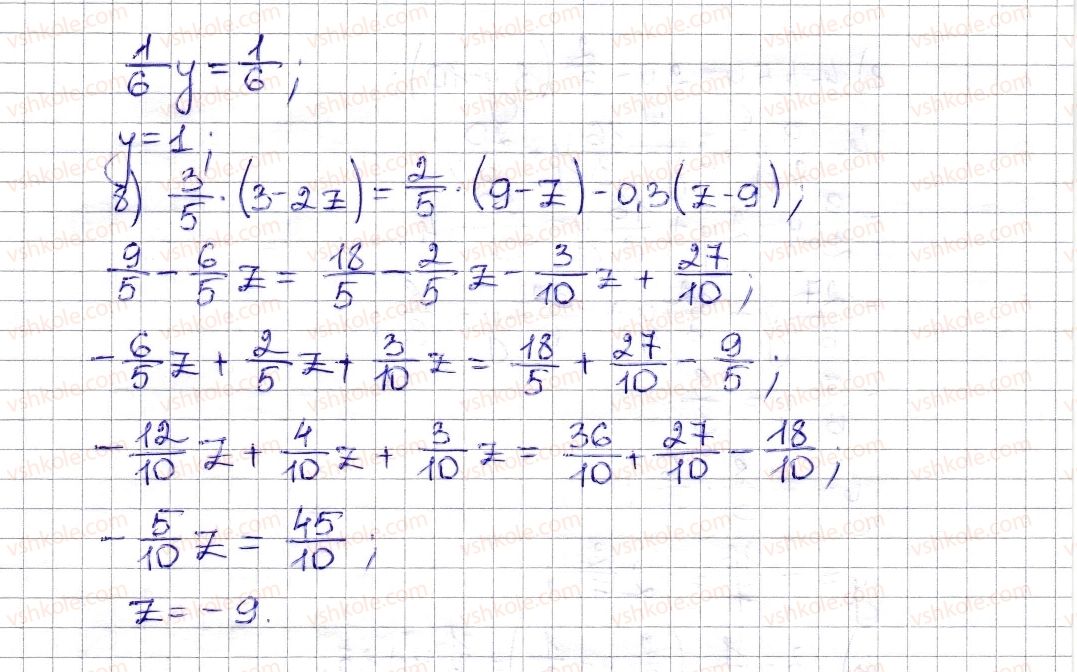 1/6 y = 1/6;
y = 1;
8) 3/5 · (3 - 2z) = 2/5 · (9 - z) - 0,3(z - 9);
9/5 - 6/5 z = 18/5 - 2/5 z - 3/10 z + 27/10;
- 6/5 z + 2/5 z + 3/10 z = 18/5 + 27/10 - 9/5;
- 12/10 z + 4/10 z + 3/10 z = 36/10 + 27/10 - 18/10;
- 5/10 z = 45/10;
z = - 9.
vshkole.com